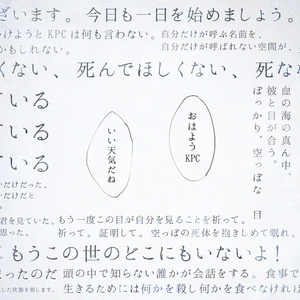 ざいます。今日も一日を始めましょう。
つけようとKPCは何も言わない。
かもしれない。
自分だけが呼ぶ名前を、
自分だけが呼ばれない空間が、
くない、死んでほしくない、死な
ている
ている
ている
血の海の真ん中、
彼と目が合う。
ぽっかり、空っぽな目
おはよう
KPC
いい天気だね
かだけだった。
かだけだと
君を見ていた。もう一度この目が自分を見ることを祈って。
思った。
祈って。証明して。空っぽの死体を抱きしめて眠れ。
もうこの世のどこにもいないよ！
まったのだ
頭の中で知らない誰かが会話をする。食事で
した状態を指します。
生きるためには何かを殺し何かを食べなければ